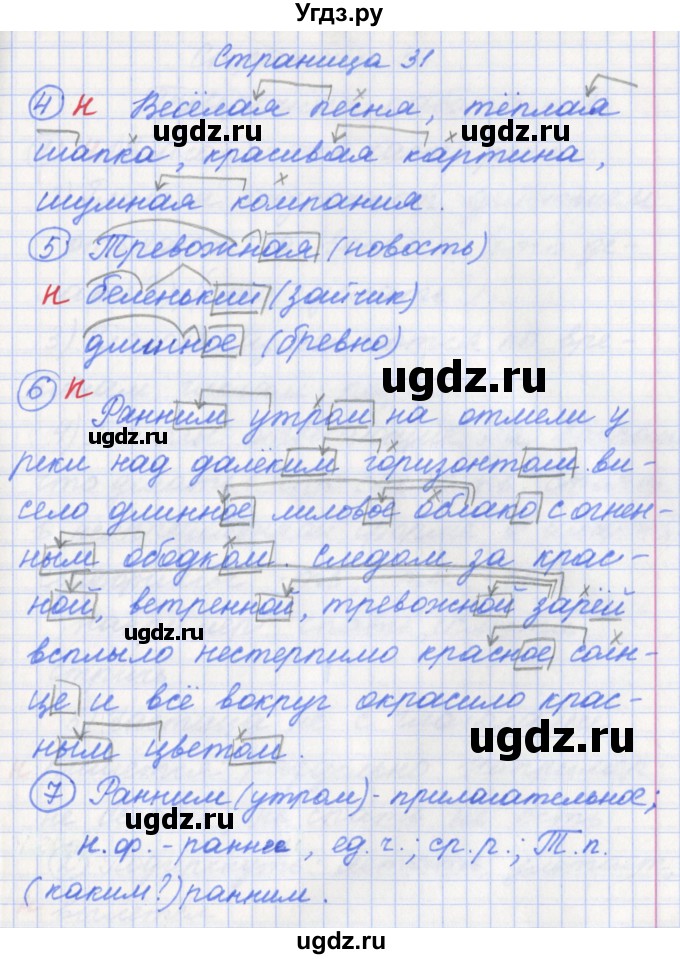 Угдз.ру
Страница 31
4 н Весёлая песня, тёплая
ugdz.ru ugdz.ru
шапка, красивая картина,
шумная компания.
5 Тревожная (новость)
ugdz.ru
н беленький (зайчик)
длинное (бревно)
ugdz.ru
6 н
Ранним утром на отмели у
реки над далёким горизонтом ви-
село длинное лиловое облако с огнен-
ным ободком. Следом за крас-
ной, ветренной, тревожной зарёй
ugdz.ru
всплыло нестерпимо красное солн-
це и всё вокруг окрасило крас-
ным цветом.
ugdz.ru
7 Ранним (утром) - прилагательное;
ugdz.ru
н.ф. - раннее, ед.ч.; ср.р.; Т.п.
(каким?) ранним.
ugdz.ru
ugdz.ru